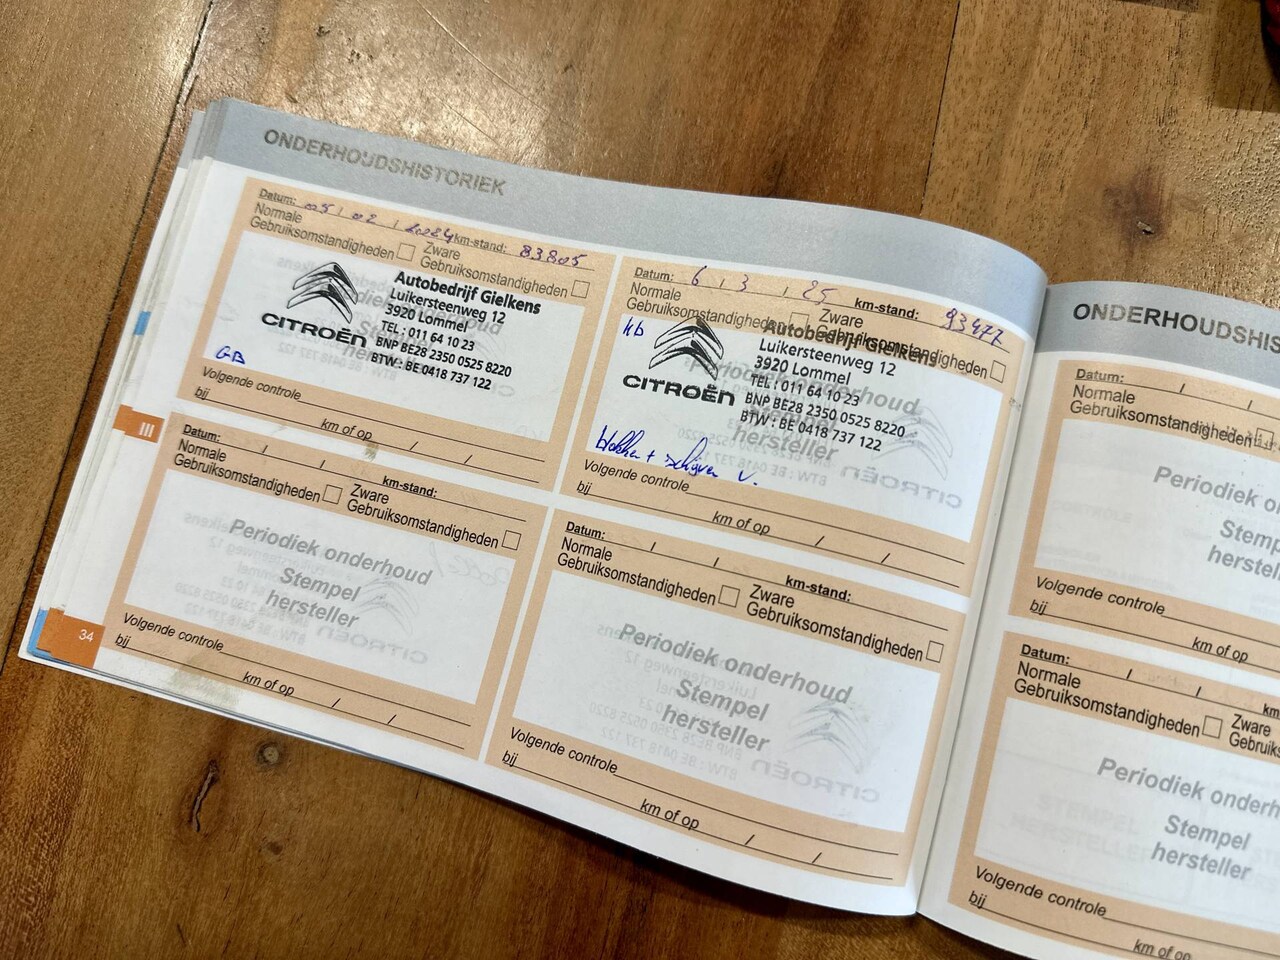 ONDERHOUDSHISTORIEK
Datum: 05 / 02 / 2024 km-stand: 83805
Normale
Gebruiksomstandigheden
Zware
Gebruiksomstandigheden
CITROËN
Autobedrijf Gielkens
Luikersteenweg 12
3920 Lommel
TEL : 011 64 10 23
BNP BE28 2350 0525 8220
BTW : BE 0418 737 122
GB
Volgende controle
bij
km of op / /
Datum: 6 / 3 / 25 km-stand: 93477
Normale
Gebruiksomstandigheden
Zware
Gebruiksomstandigheden
CITROËN
Autobedrijf Gielkens
Luikersteenweg 12
3920 Lommel
TEL : 011 64 10 23
BNP BE28 2350 0525 8220
BTW : BE 0418 737 122
Periodiek onderhoud
Stempel
hersteller
blokken + schijven v.
Volgende controle
bij
km of op / /
III
Datum: / / km-stand:
Normale
Gebruiksomstandigheden
Zware
Gebruiksomstandigheden
Periodiek onderhoud
Stempel
hersteller
Volgende controle
bij
km of op / /
Datum: / / km-stand:
Normale
Gebruiksomstandigheden
Zware
Gebruiksomstandigheden
Periodiek onderhoud
Stempel
hersteller
Volgende controle
bij
km of op / /
34
ONDERHOUDSHIS
Datum: / /
Normale
Gebruiksomstandigheden
Periodiek on
Stempel
herstelle
Volgende controle
bij
km of op
Datum: / / km-s
Normale
Gebruiksomstandigheden
Zware
Gebruik
Periodiek onderh
Stempel
hersteller
Volgende controle
bij
km of op